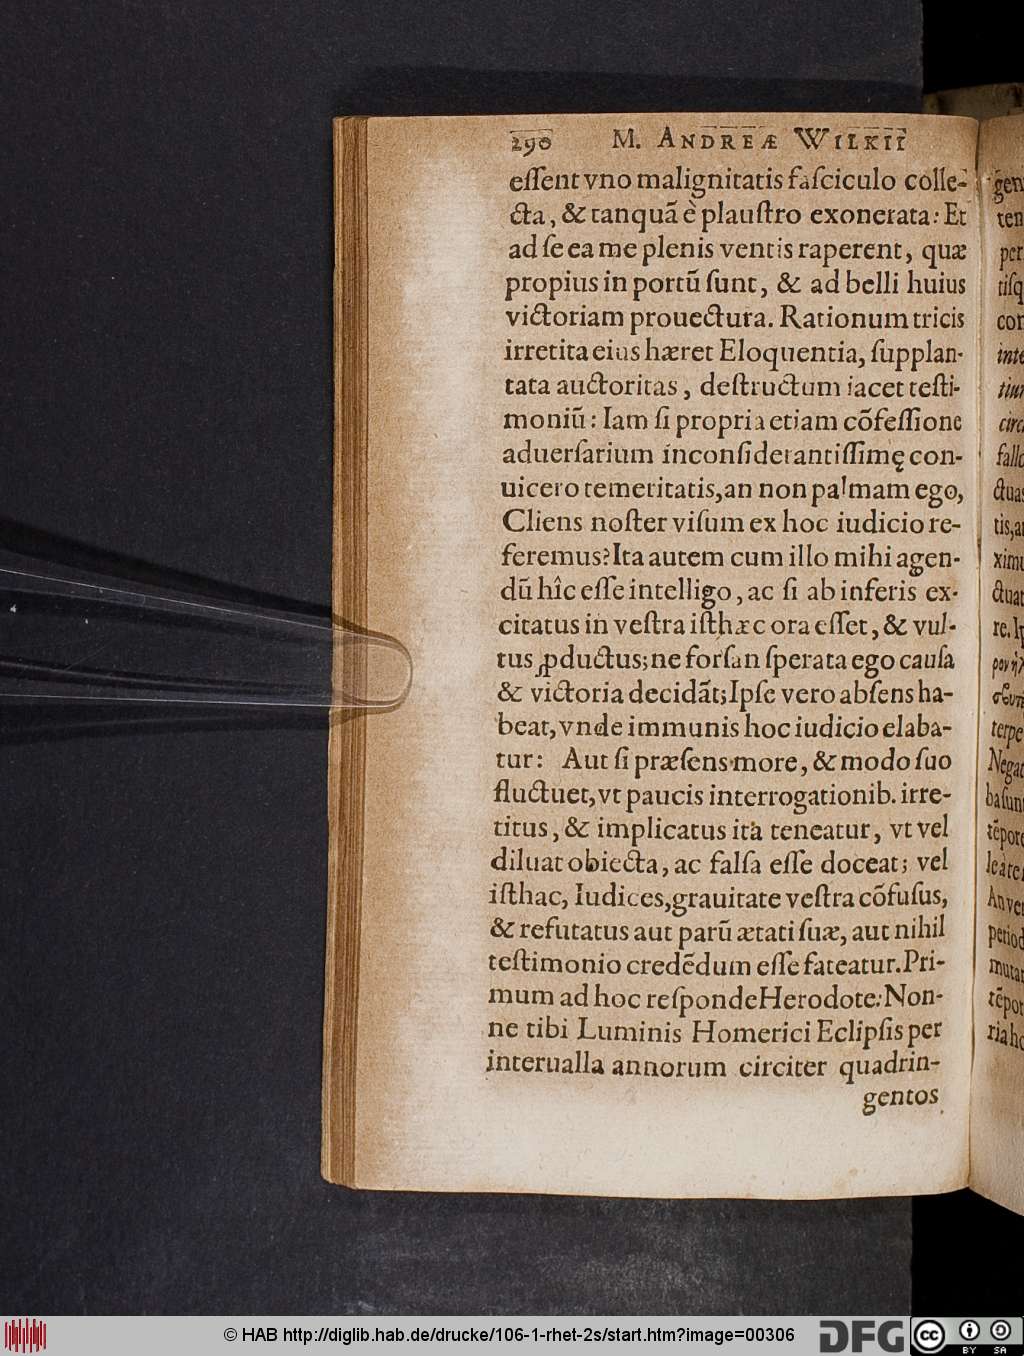 290 M. ANDREÆ WILKII
eſſent vno malignitatis faſciculo colle-
cta, & tanquā è plauſtro exonerata: Et
ad ſe ea me plenis ventis raperent, quæ
propius in portū ſunt, & ad belli huius
victoriam prouectura. Rationum tricis
irretita eius hæret Eloquentia, ſupplan-
tata auctoritas, deſtructum iacet teſti-
moniū: Iam ſi propria etiam cõfeſſione
aduerſarium inconſiderantiſſimę con-
uicero temeritatis, an non palmam ego,
Cliens noſter viſum ex hoc iudicio re-
feremus? Ita autem cum illo mihi agen-
dū hîc eſſe intelligo, ac ſi ab inferis ex-
citatus in veſtra iſthæc ora eſſet, & vul-
tus ꝓductus; ne forſan ſperata ego cauſa
& victoria decidāt; Ipſe vero abſens ha-
beat, vnde immunis hoc iudicio elaba-
tur: Aut ſi præſens more, & modo ſuo
fluctuet, vt paucis interrogationib. irre-
titus, & implicatus ita teneatur, vt vel
diluat obiecta, ac falſa eſſe doceat; vel
iſthac, Iudices, grauitate veſtra cõfuſus,
& refutatus aut parū ætati ſuæ, aut nihil
teſtimonio credēdum eſſe fateatur. Pri-
mum ad hoc reſponde Herodote: Non-
ne tibi Luminis Homerici Eclipſis per
interualla annorum circiter quadrin-
gentos
gen
ten
per
tiſq
con
inte
tiur
circ
fallo
ctuas
tis, a
ximu
ctuat
re. Ip
terpe
Negat
baſunt
tēpore
An ver
period
mutar
tēpor
ria ho
© HAB http://diglib.hab.de/drucke/106-1-rhet-2s/start.htm?image=00306
DFG
cc
BY SA